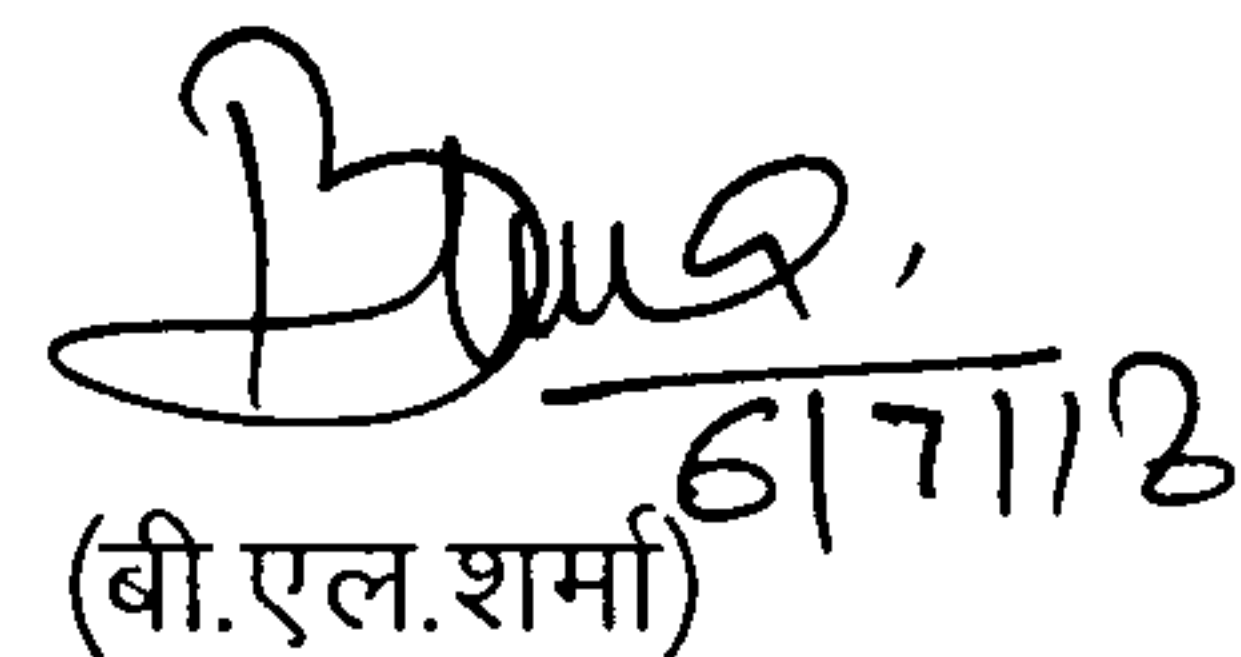 6/7/13
(बी.एल.शर्मा)